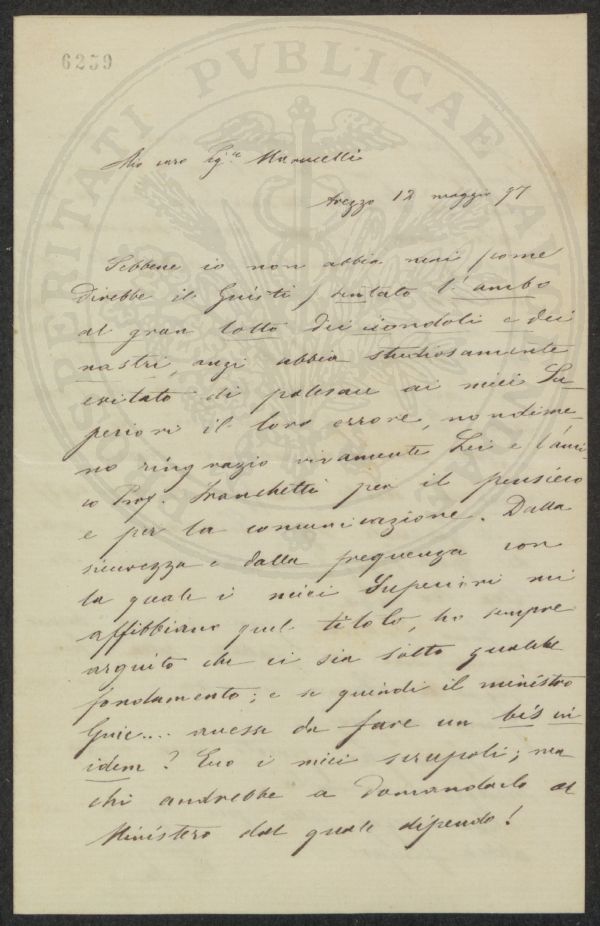 6239
PROSPERITATI PVBLICAE AVGENDAE
Mio caro Sig.re Marucelli
Arezzo 12 maggio 97
Sebbene io non abbia mai (come
direbbe il Giusti) tentato l'ambo
al gran lotto dei ciondoli e dei
nastri, anzi abbia studiosamente
evitato di palesare ai miei Su
periori il loro errore, nondime
no ringrazio vivamente Lei e l'ami
co Prof. Franchetti per il pensiero
e per la comunicazione. Dalla
sicurezza e dalla frequenza con
la quale i miei Superiori mi
affibbiano quel titolo, ho sempre
arguito che ci sia sotto qualche
fondamento; e se quindi il ministro
Guic.... avesse da fare un bis in
idem? Ecco i miei scrupoli; ma
chi andrebbe a domandarlo al
Ministero dal quale dipendo!